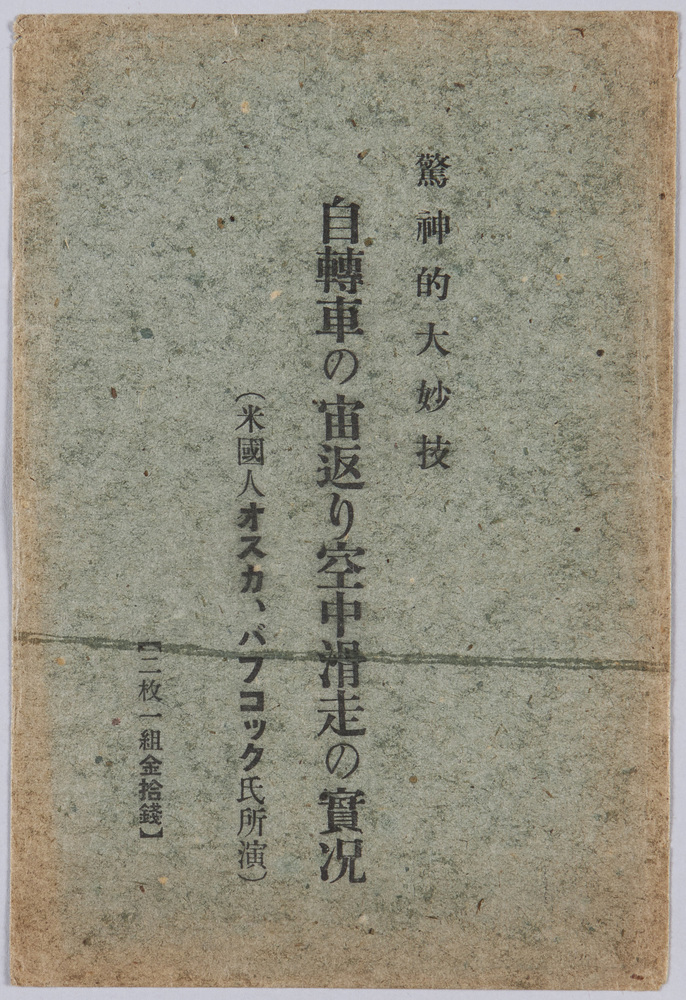 驚神的大妙技
自轉車の宙返り空中滑走の實況
（米國人オスカ、バフコック氏所演）
【二枚一組金拾錢】